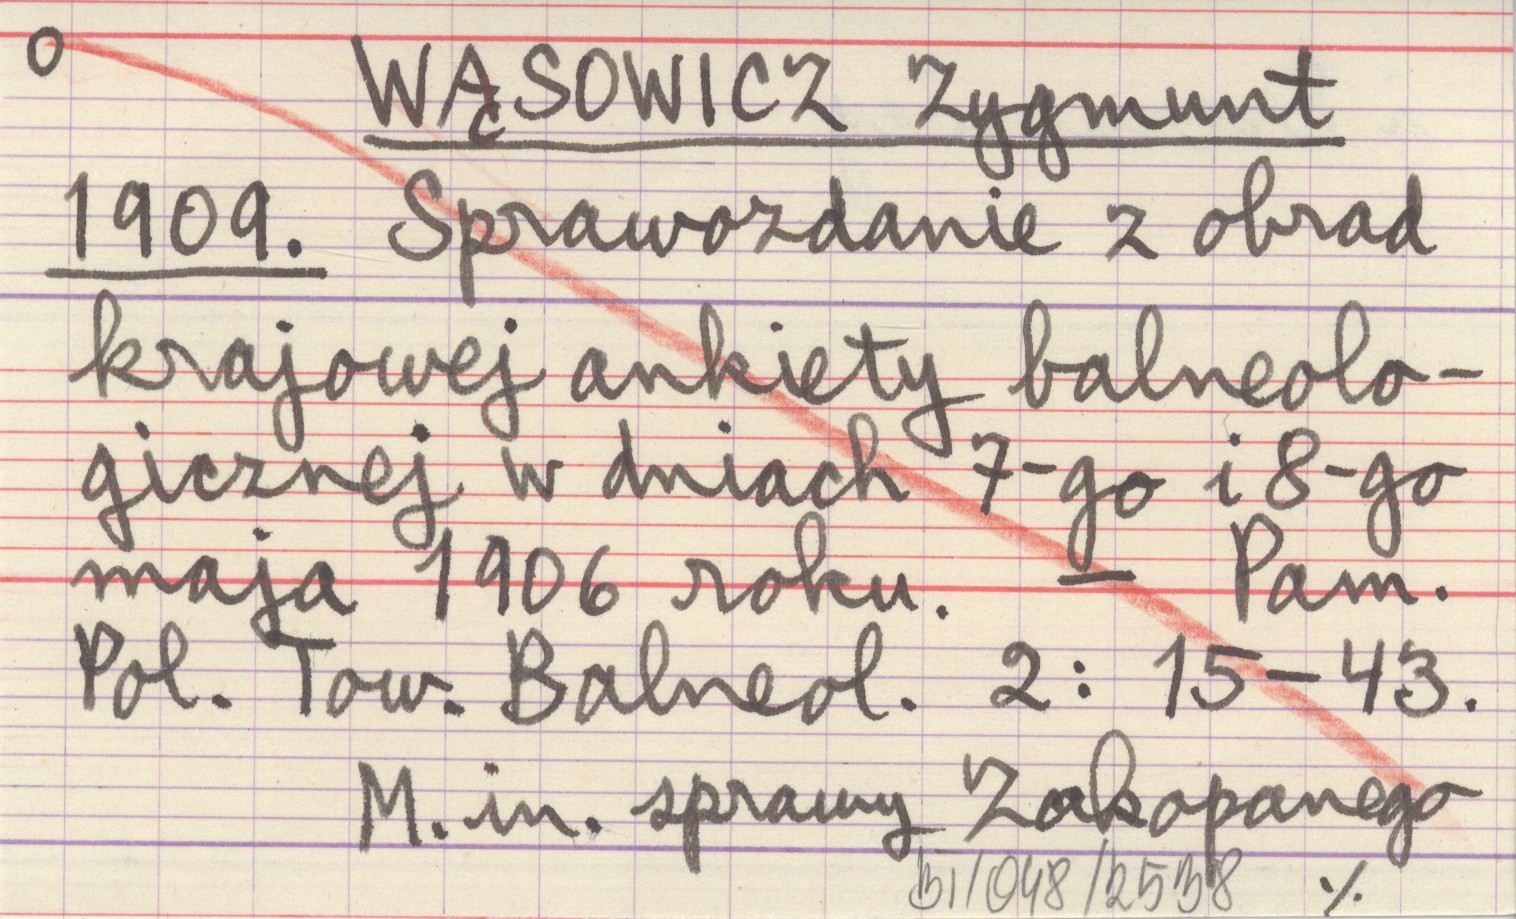 O WĄSOWICZ Zygmunt
1909. Sprawozdanie z obrad
krajowej ankiety balneolo-
gicznej w dniach 7-go i 8-go
maja 1906 roku. — Pam.
Pol. Tow. Balneol. 2: 15-43.
M. in. sprawy Zakopanego
BI/048/2538 ⁒